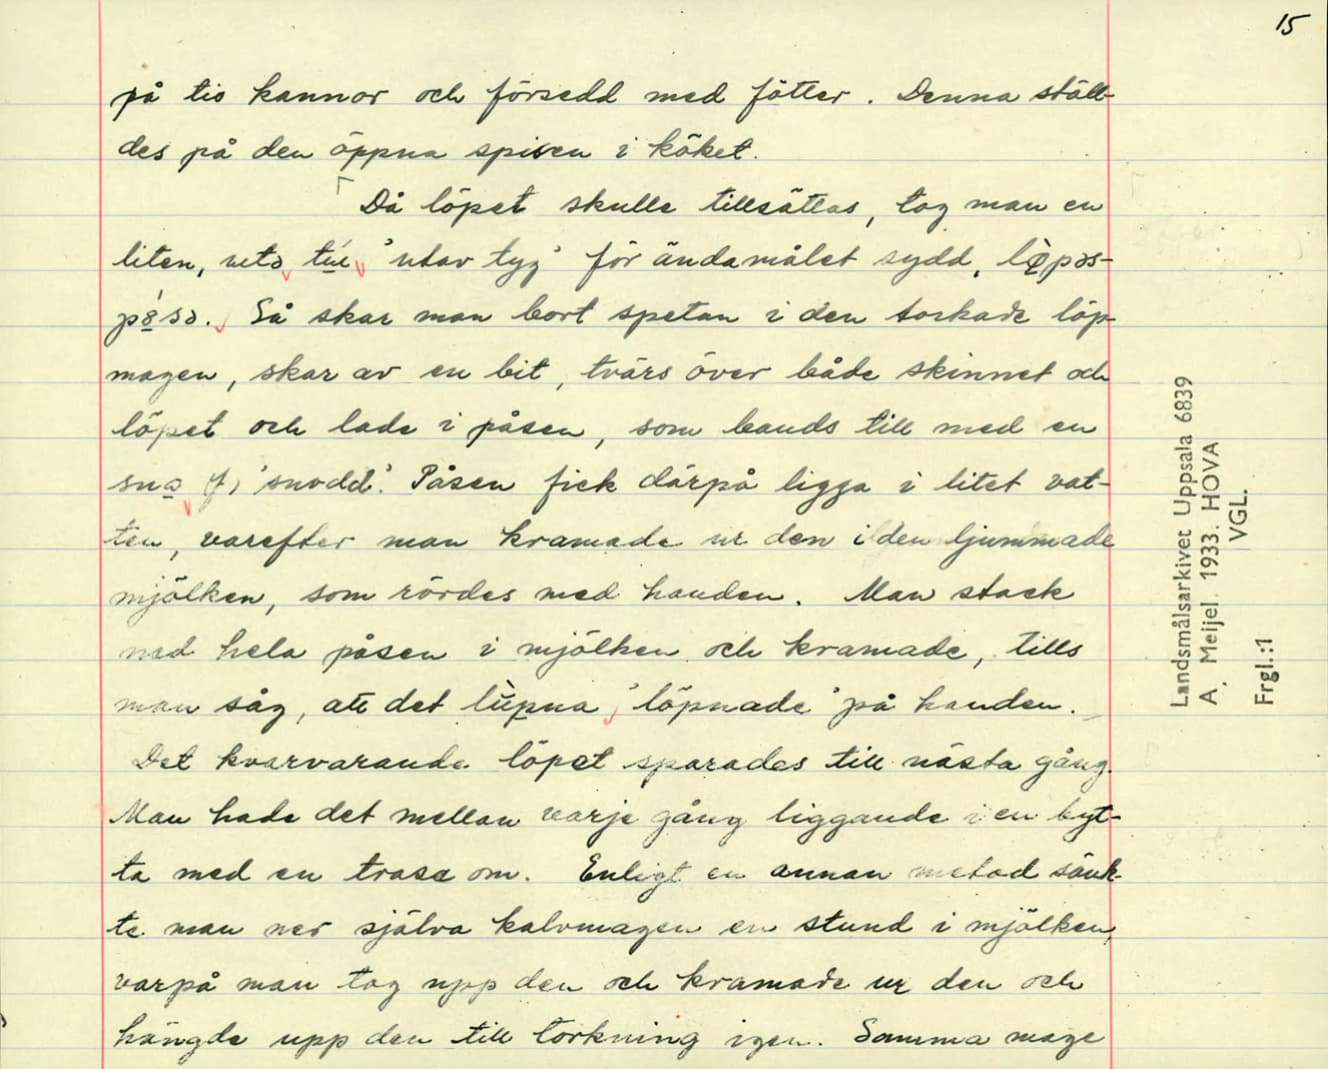 15
på tio kannor och försedd med fötter. Denna ställ-
des på den öppna spisen i köket.
Då löpet skulle tillsättas, tog man en
liten, 'utav tyg' för ändamålet sydd,
Så skar man bort spetan i den torkade löp-
magen, skar av en bit, tvärs över både skinnet och
löpet och lade i påsen, som bands till med en
'snodd'. Påsen fick därpå ligga i litet vat-
ten, varefter man kramade ur den i den ljummade
mjölken, som rördes med handen. Man stack
ned hela påsen i mjölken och kramade, tills
man såg, att det 'löpnade' på handen.
Det kvarvarande löpet sparades till nästa gång.
Man hade det mellan varje gång liggande i en byt-
ta med en trasa om. Enligt en annan metod sänk-
te man ner själva kalvmagen en stund i mjölken,
varpå man tog upp den och kramade ur den och
hängde upp den till torkning igen. Samma mage
Landsmålsarkivet Uppsala 6839
A. Meijel. 1933. HOVA
VGL.
Frgl.:1